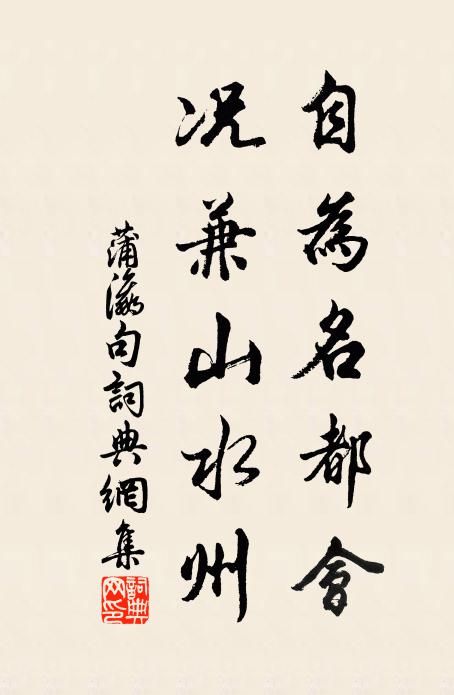 自為名都會
況兼山水州
蒲瀛句詞典網集
詞典網印